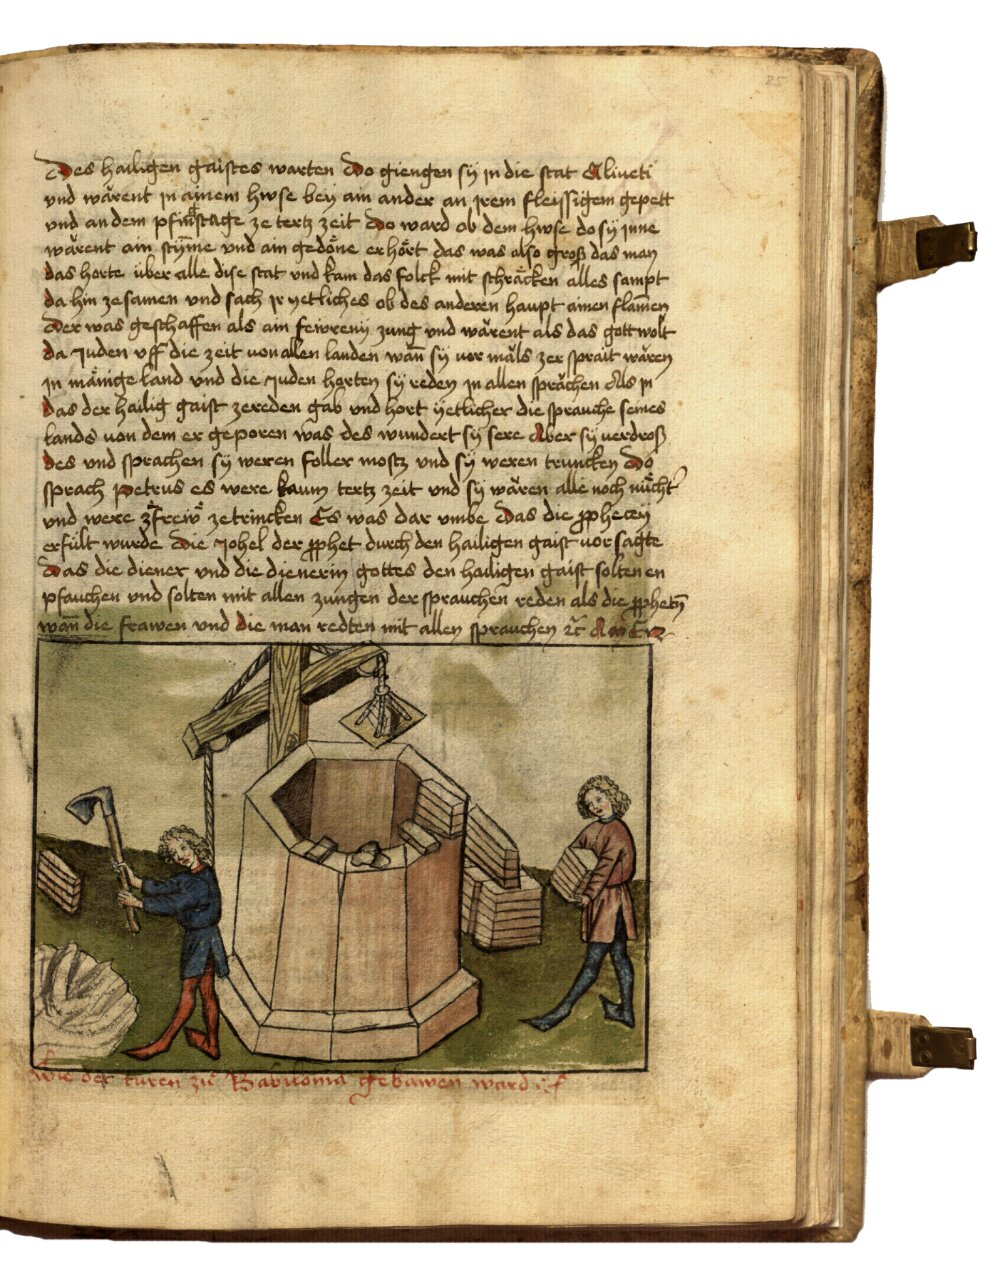 85
Des hailigen gaistes warten Do giengen sÿ in die stat Oliueti
vnd wärent in ainem hwse beÿ ain ander an jrem fleissigem gepett
vnd an dem pfinstage ze tertz zeit Do ward ob dem hwse do sÿ jnne
wärent ain stÿme vnd ain gedöne erhört das was also groß das man
das horte über alle dise stat vnd kam das folck mit schräcken alles sampt
da hin zesamen vnd sach jr yetliches ob des anderen haupt ainen flam̄en
Der was geschaffen als ain feẅreny zung vnd wärent als das gott wolt
da Juden vff die zeit von allen landen wān sÿ vor mäls zersprait wären
in mänige land vnd die Juden horten sÿ reden in allen sprächen Als jn
das der hailig gaist zereden gab vnd hort ÿetlicher die sprauche seines
lands von dem er geporen was des wundert sÿ sere Aber sÿ verdroß
des vnd sprachen sÿ weren foller mostz vnd sÿ weren truncken Do
sprach Petrus es were kaum tertz zeit vnd sÿ wären alle noch nücht
vnd were ze trincken Es was dar vmbe Das die pphecey
erfült wurde Die Johel der pphet durch den hailigen gaist vor sagte
Das die diener vnd die dienerin gottes den hailigen gaist solten en
pfauchen vnd solten mit allen zungen der sprauchen reden als die ppheten
wān die frawen vnd die man redten mit allen sprauchen ꝛc̄ Amen
Wie der turen zů Babilonia gebawen ward